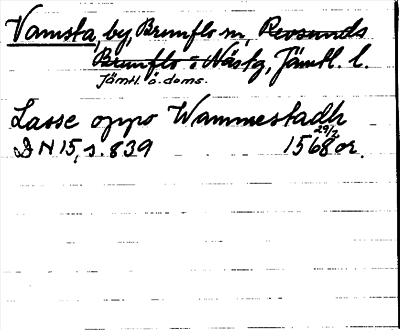 Vamsta, by, Brunflo sn, Revsunds
Brunflo o Näskg, Jämtl. l.
Jämtl. ö. doms.
Lasse oppo Wammestadh
29/2
DN 15, s. 839 1568 or.